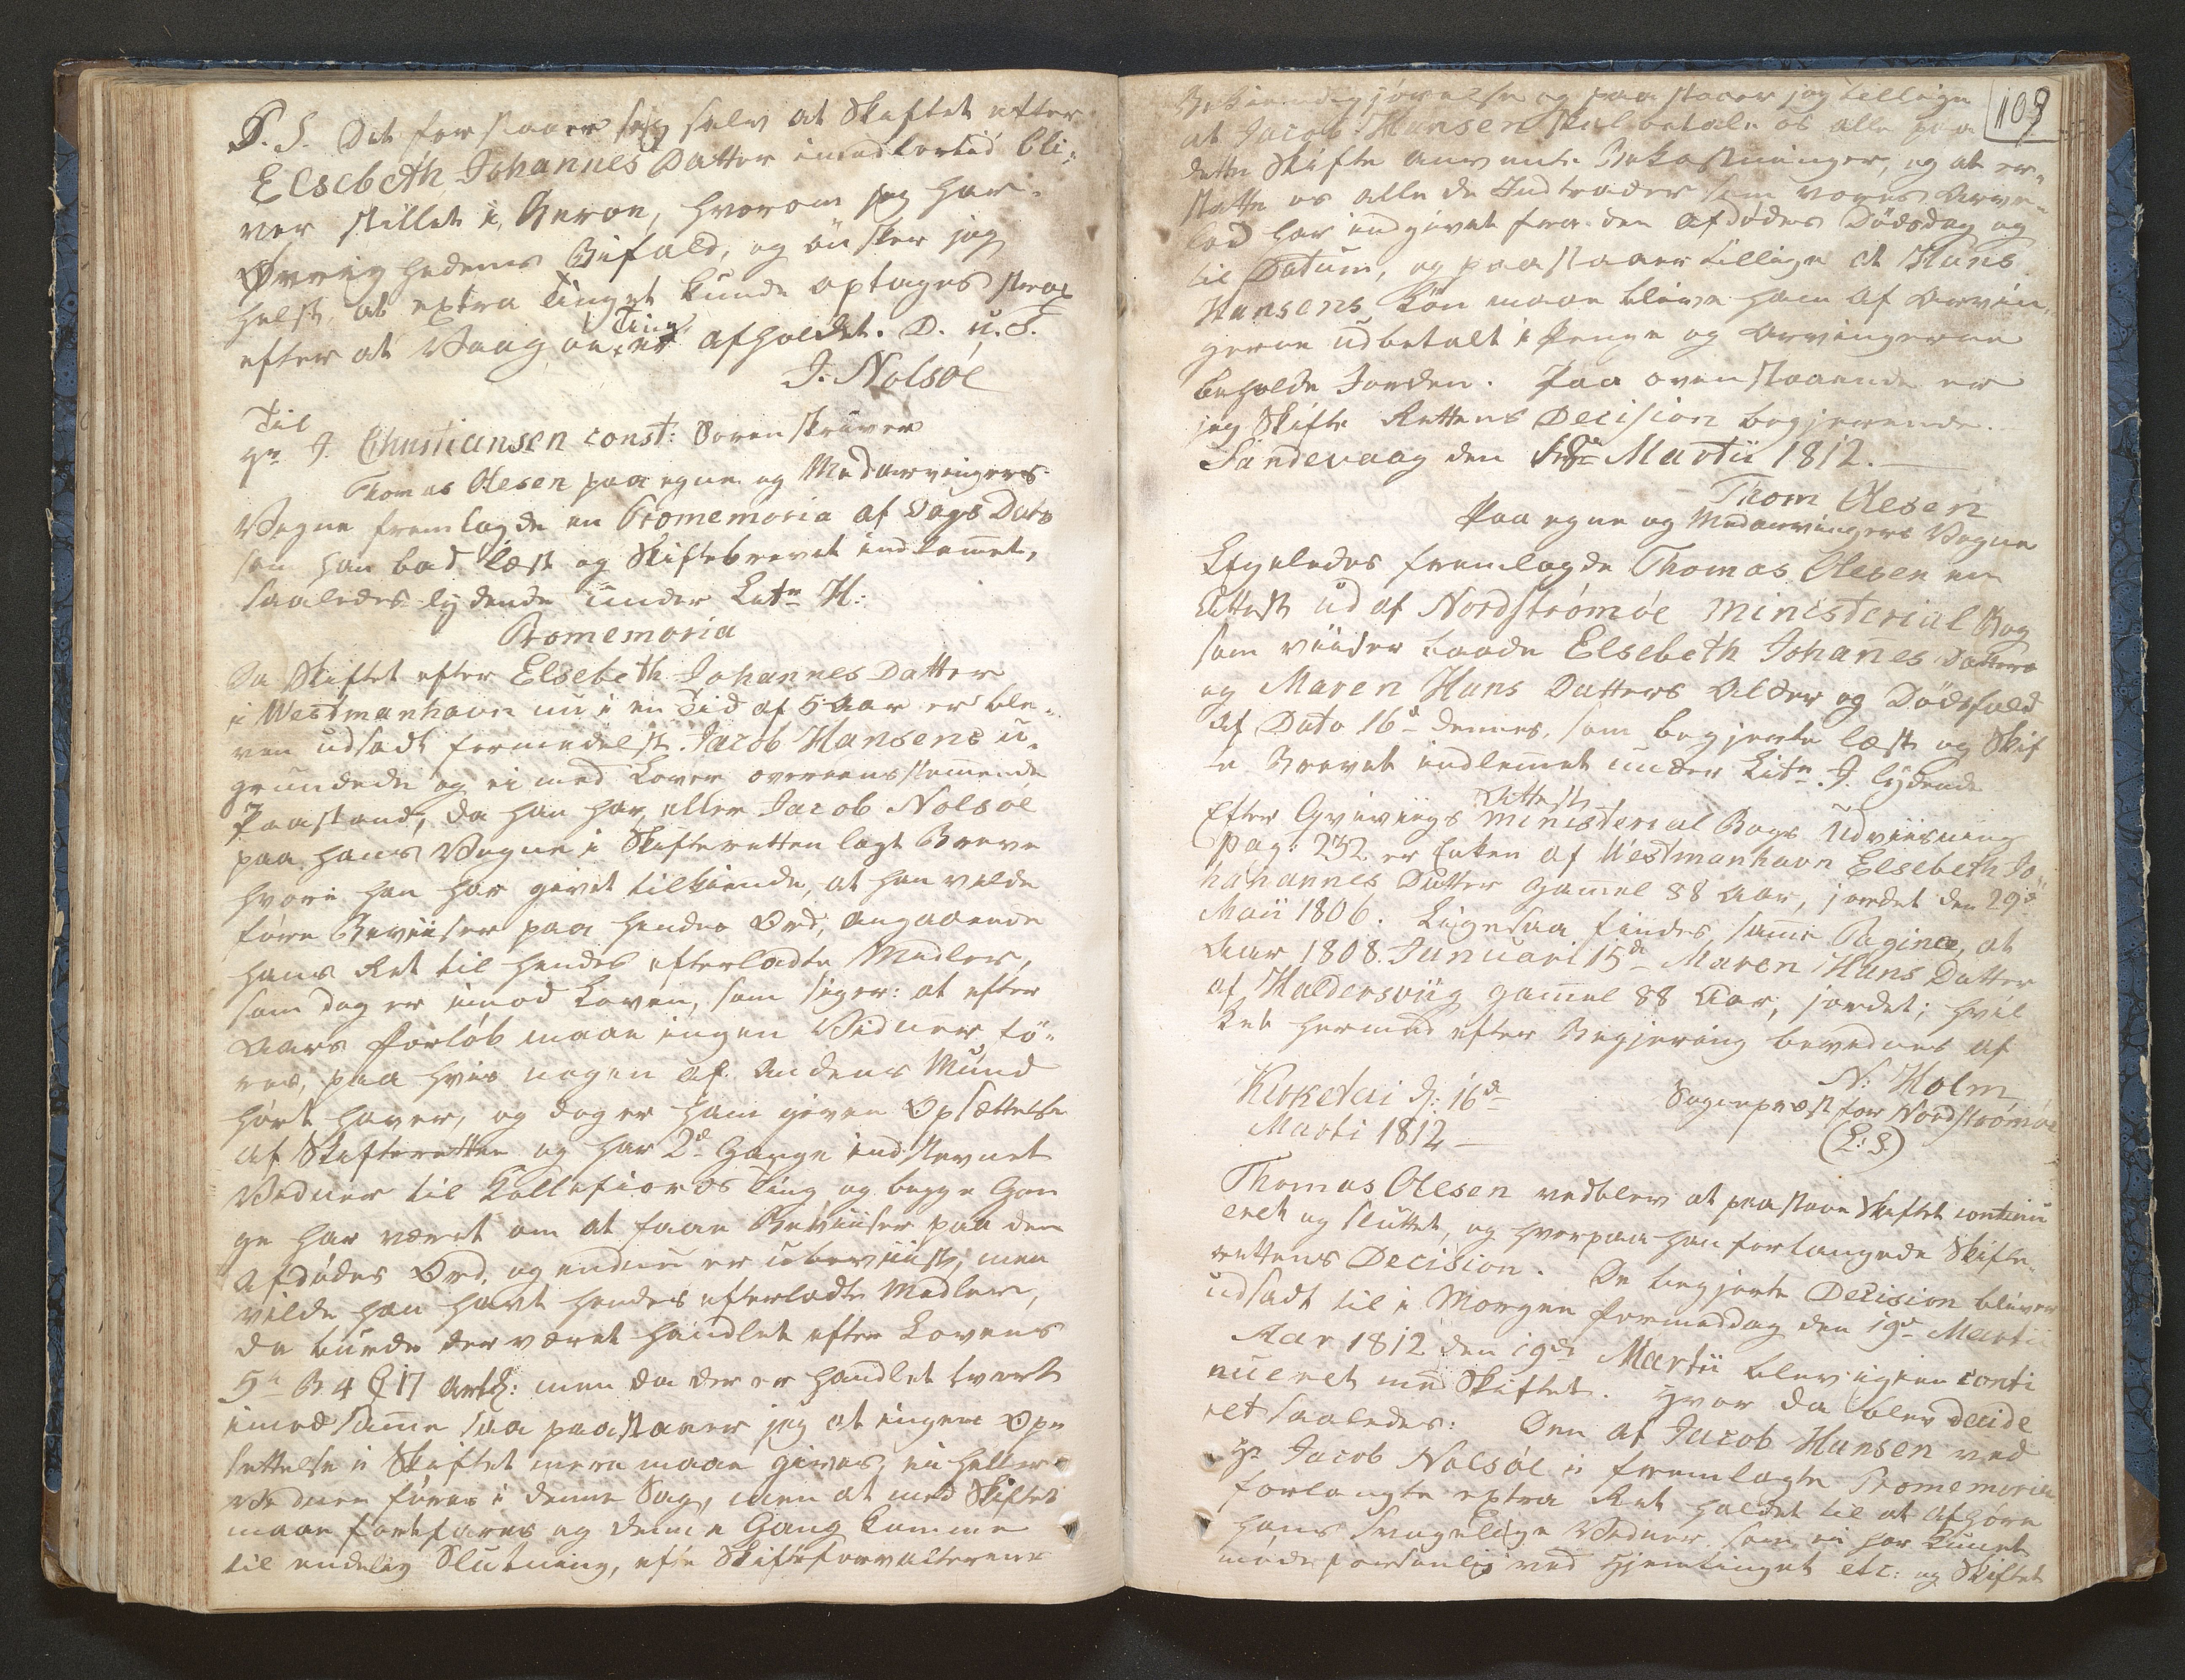 P. S. Det forstaaer sig selv at Skiftet efter
Elsebeth Johannes Datter imidlertid bli¬
ver stillet i Beroe, hvorom jeg har
Øvrighedens Bifald, og ønsker jeg
helst at extra Tinget kunde optages strax
efter at Vaagøe Ting er afholdet. D. u. S.
J. Nolsøe
Til
Hr J. Christiansen const: Sorenskriver
Thomas Olesen paa egne og Medarvingers
Vegne fremlagde en Promemoria af Dags Dato
som han bad læst og Skiftebrevet indlemet,
saaledes lydende under Litr H:
Promemoria
Da Skiftet efter Elsebeth Johannes Datter
i Westmanhavn nu i en Tid af 5 Aar er ble¬
ven udsadt formedelst Jacob Hansens u¬
grundede og ei med Loven overeensstemende
Paastand, da han har, eller Jacob Nolsøe
paa hans Vegne i Skifteretten lagt Breve
hvori han har givet tilkiende, at han vilde
føre Beviiser paa hendes Ord, angaaende
hans Ret til hendes efterladte Midler,
som dog er imod Loven, som siger: at efter
Aars Forløb maae ingen Vidner fø¬
res, paa hvis nogen af Andens Mund
hørt haver, og dog er ham given Opsættelse
af Skifteretten og har 2de Gange indstevnet
Vidner til Kollefiords Ting og begge Gan
ge har været om at faae Beviiser paa den
Afdødes Ord, og endnu er ubeviist, men
vilde han havt hendes efterladte Midler,
da burde der været handlet efter Lovens
5te B 4 C 17 Artl: men da der er handlet tvert
imod same saa paastaaer jeg at ingen Op¬
settelse i Skiftet mere maae gives, ei heller
Vidner føres i denne Sag, men at med Skiftet
maae fortfares og denne Gang komme
til endelig Slutning, efter Skifteforvalterens
109
Bekiendtgjørelse og paastaaer jeg tillige
at Jacob Hansen skal betale os alle paa
dette Skifte anvendte Bekostninger, og at er¬
statte os alle de Indtrader som vores Arve¬
lod har indgivet fra den Afdødes Dødsdag og
til Datum, og paastaaer tillige at Hans
Hansens Løn maae blive ham af Arvin¬
gerne udbetalt i Penge og Arvingerne
beholde Jorden. Paa ovenstaaende er
jeg Skifte Rettens Decision begjerende.
Sandevaag den 18de Martii 1812.
Thom Olesen
Paa egne og Medarvingers Vegne
Ligeledes fremlagde Thomas Olesen en
Attest ud af Nordstrømøe Ministerial Bog
som viiser baade Elsebeth Johanes Datters
og Maren Hans Datters Alder og Dødsfald
af Dato 16de dennes, som begjerte læst og Skif
te Brevet indlemet under Litr. J. lydende
Attest
Efter Qvivigs Ministerial Bogs Udviisning
Pag: 232 er Enken af Westmanhavn Elsebeth Jo¬
hannes Datter gamel 88 Aar, jordet den 29de
Maii 1806. Ligesaa findes same Pagina, at
Aar 1808. Januari 15de Maren Hans Datter
af Haldersviig gamel 88 Aar, jordet; hvil
ket hermed efter Begjering bevidnes af
N: Holm
Kirketai d: 16de
Sogneprest for Nordstrømøe
Marti 1812
(L: S.)
Thomas Olesen vedblev at paastaae Skiftet continu
eret og sluttet, og hvorpaa han forlangede Skifte¬
rettens Decision. De begjerte Decision bliver
udsadt til i Morgen Formiddag den 19de Martii
Aar 1812 den 19de Martii blev igien conti
nueret med Skiftet. Hvor da blev decide
ret saaledes: Den af Jacob Hansen ved
Hr Jacob Nolsøe i fremlagte Promemoria
forlangte extra Ret holdet til at afhøre
hans svagelige Vidner som ei har kunnet
møde personlig ved Hjemtinget etc: og Skiftet